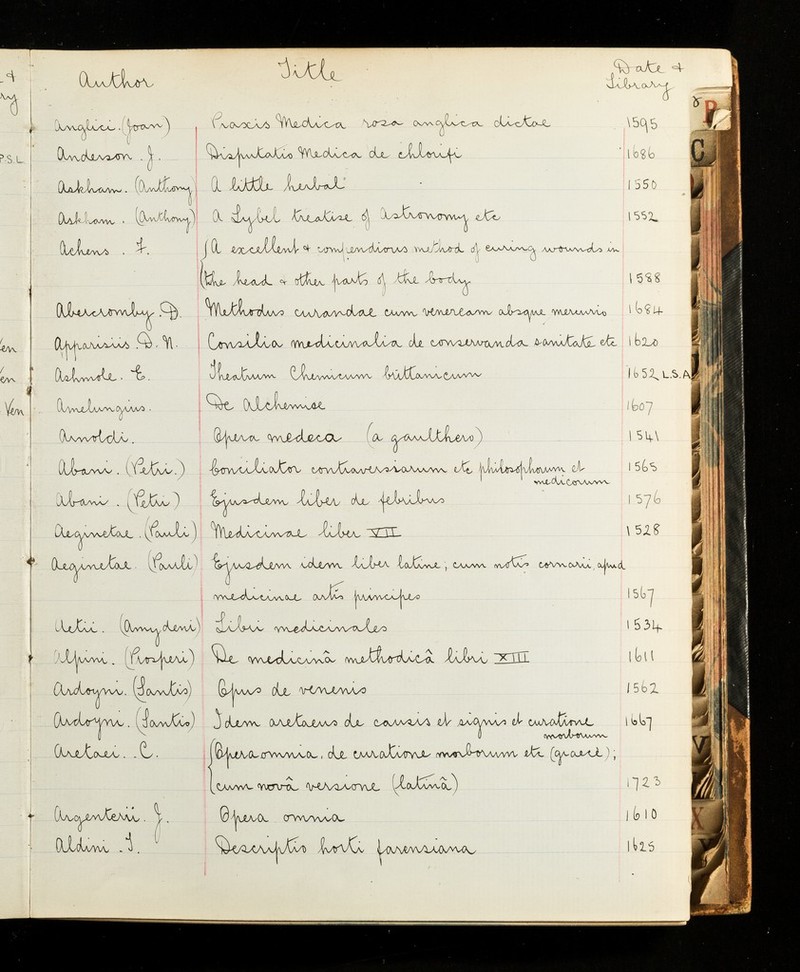 Author Title Date &
Library
Anglici. (Joan) Praxis Medica rosa anglica dictae 1595
Anderson. J. Disputatio Medica de chlorifi 1686
Askham. (Anthony) A little herbal 1550
Askham. (Anthony) A Lybel treatise of Astronomy etc 1552
Achens. F. A excellent & compendious method of curing wounds in
the head & other parts of the body 1588
Abercromby. D. Methodus curandae cum veneream absque mercurio 1684
Apparisiis. D. N. Consilia medicinalia de conservanda sanitate etc 1620
Ashmole. E. Theatrum Chemicum brittanicum 1652 L.S.A
Amelungius. De Alchemise 1607
Arnoldi. Opera medeca (a gaulthero) 1541
Abani. (Petri.) Conciliator contraversiarum etc philosophorum et
medicorum 1565
Abani. (Petri) Ejusdem liber de febribus 1576
Aeginetae. (Pauli) Medicinae liber VII 1528
Aeginetae. (Pauli) Ejusdem idem liber latine; cum notis cornarii, apud
medicinae artis principes 1567
Aetii. (Amydeni) Libri medicinales 1534
Alpini. (Prosperi) De medicinâ methodicâ libri XIII 1611
Ardoyni. (Santis) Opus de venenis 1562
Ardoyni. (Santis) Idem aretaeus de causis et signis et curatione
morborum 1667
Aretaei. C. Opera omnia, de curatione morborum etc (graecè);
cum novâ versione (latinâ) 1723
Argenterii. J. Opera omnia 1610
Aldini. T. Descriptio horti farensiana 1625
P.S.L.
ry
en
en
Ven
P
C
V
X